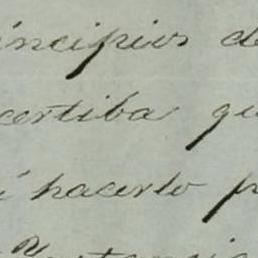 incipios de
certiba qu
i hacerlo p